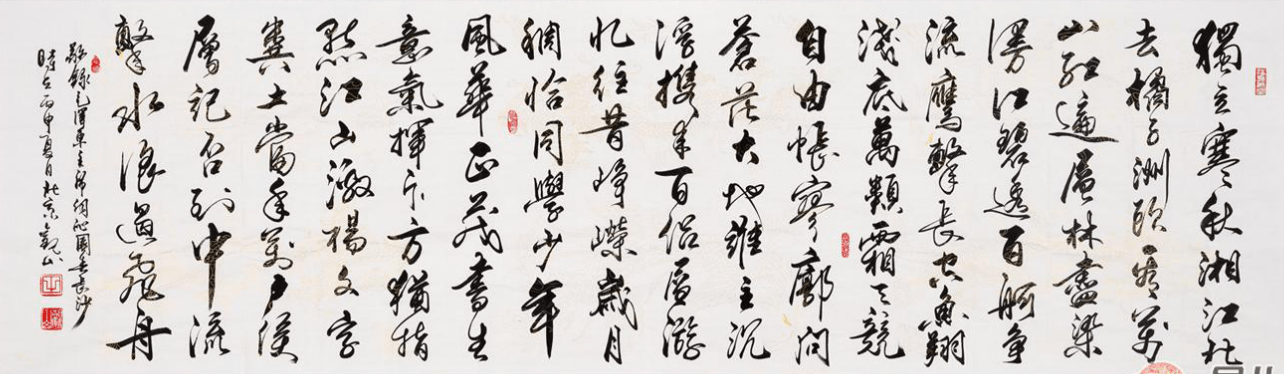 獨立寒秋湘江北
去橘子洲頭看萬
山紅遍層林盡染
漫江碧透百舸爭
流鷹擊長空魚翔
淺底萬類霜天競
自由悵寥廓問
蒼茫大地誰主沉
浮攜來百侶曾游
憶往昔崢嶸歲月
稠恰同學少年
風華正茂書生
意氣揮斥方遒指
點江山激揚文字
糞土當年萬戶侯
曾記否到中流
擊水浪遏飛舟
敬錄毛澤東主席詞沁園春長沙
時在丙申夏月於京觀山